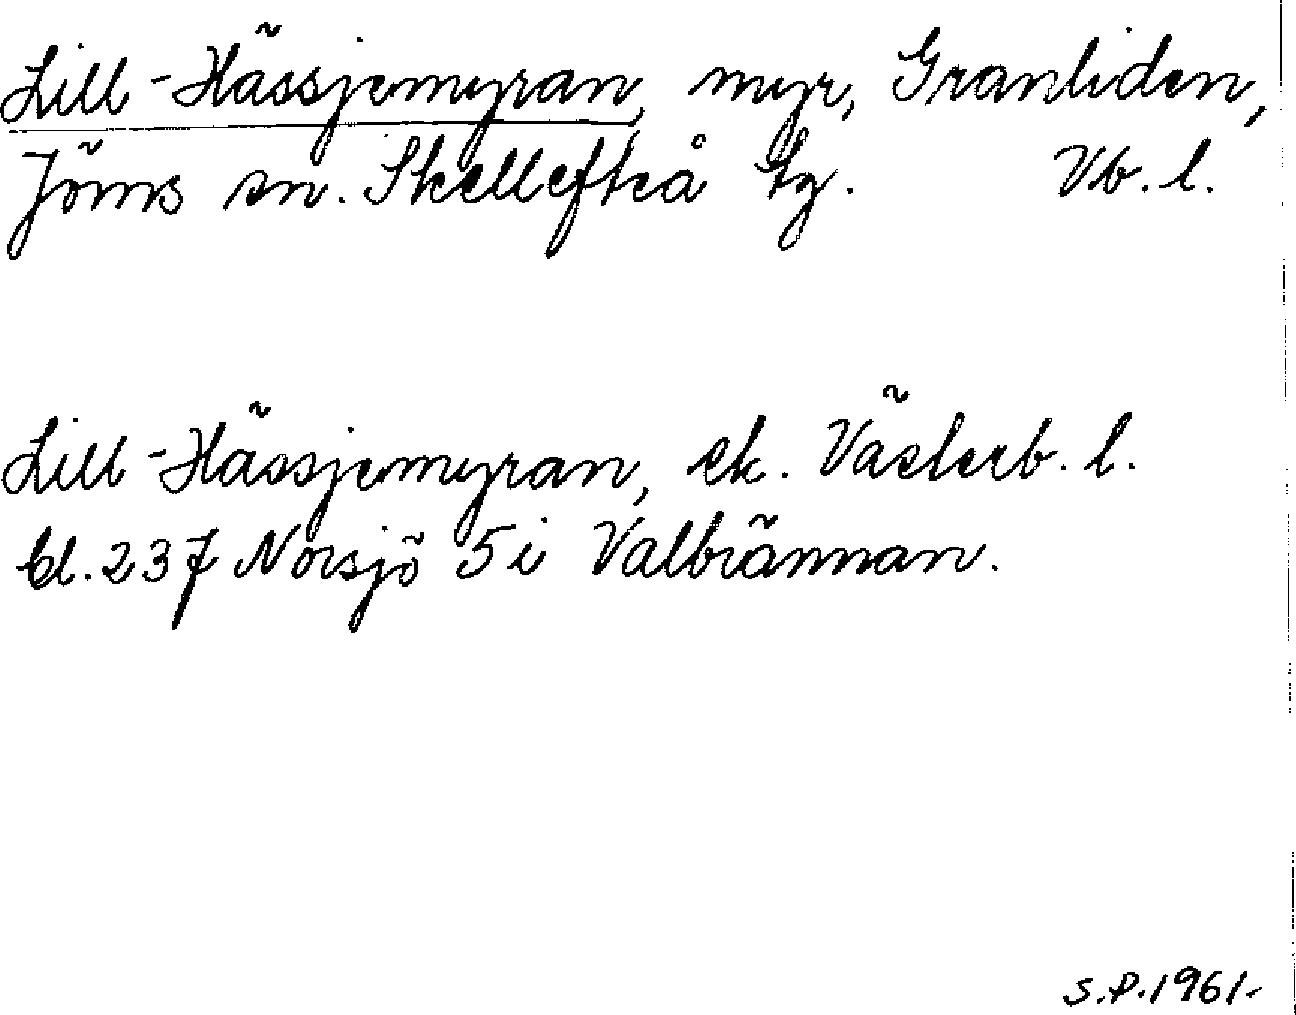 Lill-Hässjemyran, myr, Granliden,
Jörns sn. Skellefteå tg. Vb. l.
Lill-Hässjemyran, ek. Västerb. l.
bl. 237 Norsjö 5i Valbrännan.
S.P. 1961.